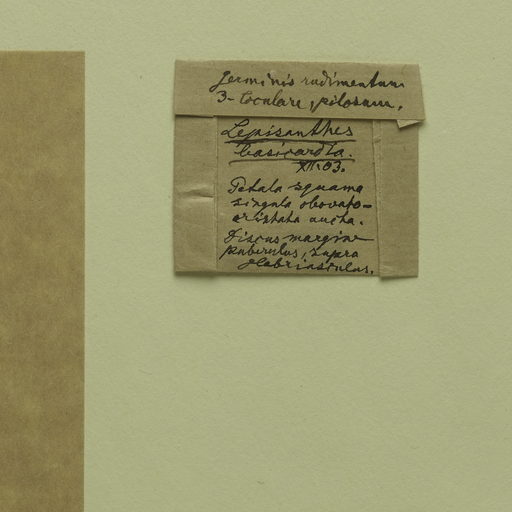 Germinis rudimentum
3-loculare, pilosum.
Lepisanthes
basicardia.
XII.03.
Petala squama
singula obovato-
aristata aucta.
Discus margine
puberulus, supra
glabriusculus.